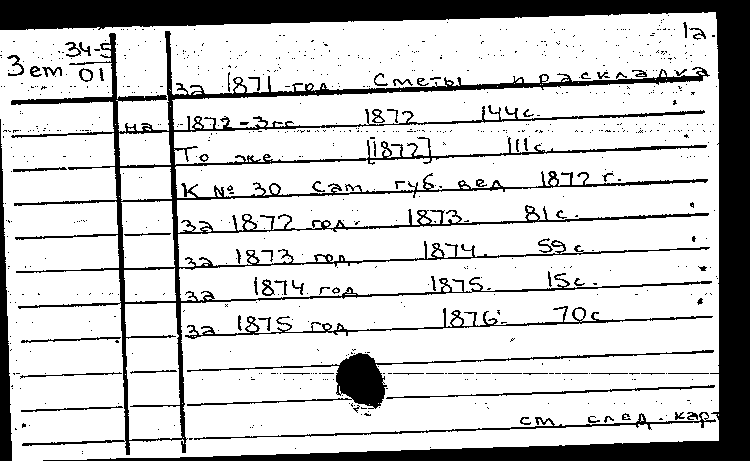 1а.
Зем 34-5/01
за 1871 год Сметы и раскладка
на 1872-3 гг. 1872 144с
То же. [1872] 111с.
К № 30 Сам. губ. вед 1872 г.
за 1872 год. 1873. 81с.
за 1873 год 1874. 59с
за 1874 год 1875. 15с.
за 1875 год 1876. 70с
см. след. карт